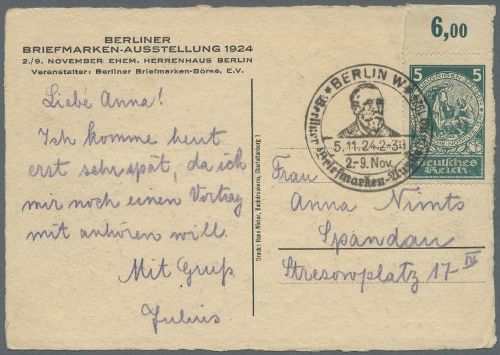 BERLINER
BRIEFMARKEN-AUSSTELLUNG 1924
2./9. NOVEMBER EHEM. HERRENHAUS BERLIN
Veranstalter: Berliner Briefmarken-Börse, E.V.
Liebe Anna!
Ich komme heut
erst sehr spät, da ich
mir noch einen Vortrag
mit anhören will.
Mit Gruß
Julius
Druck: Hans Winter, Buchdruckerei, Charlottenburg 1
6,00
5 5
Deutsches
Reich
BERLIN W
5.11.24.2-3N
2.-9. Nov.
Berliner Briefmarken-
Frau
Anna Nimts
Spandau
Stresowplatz 17 IV